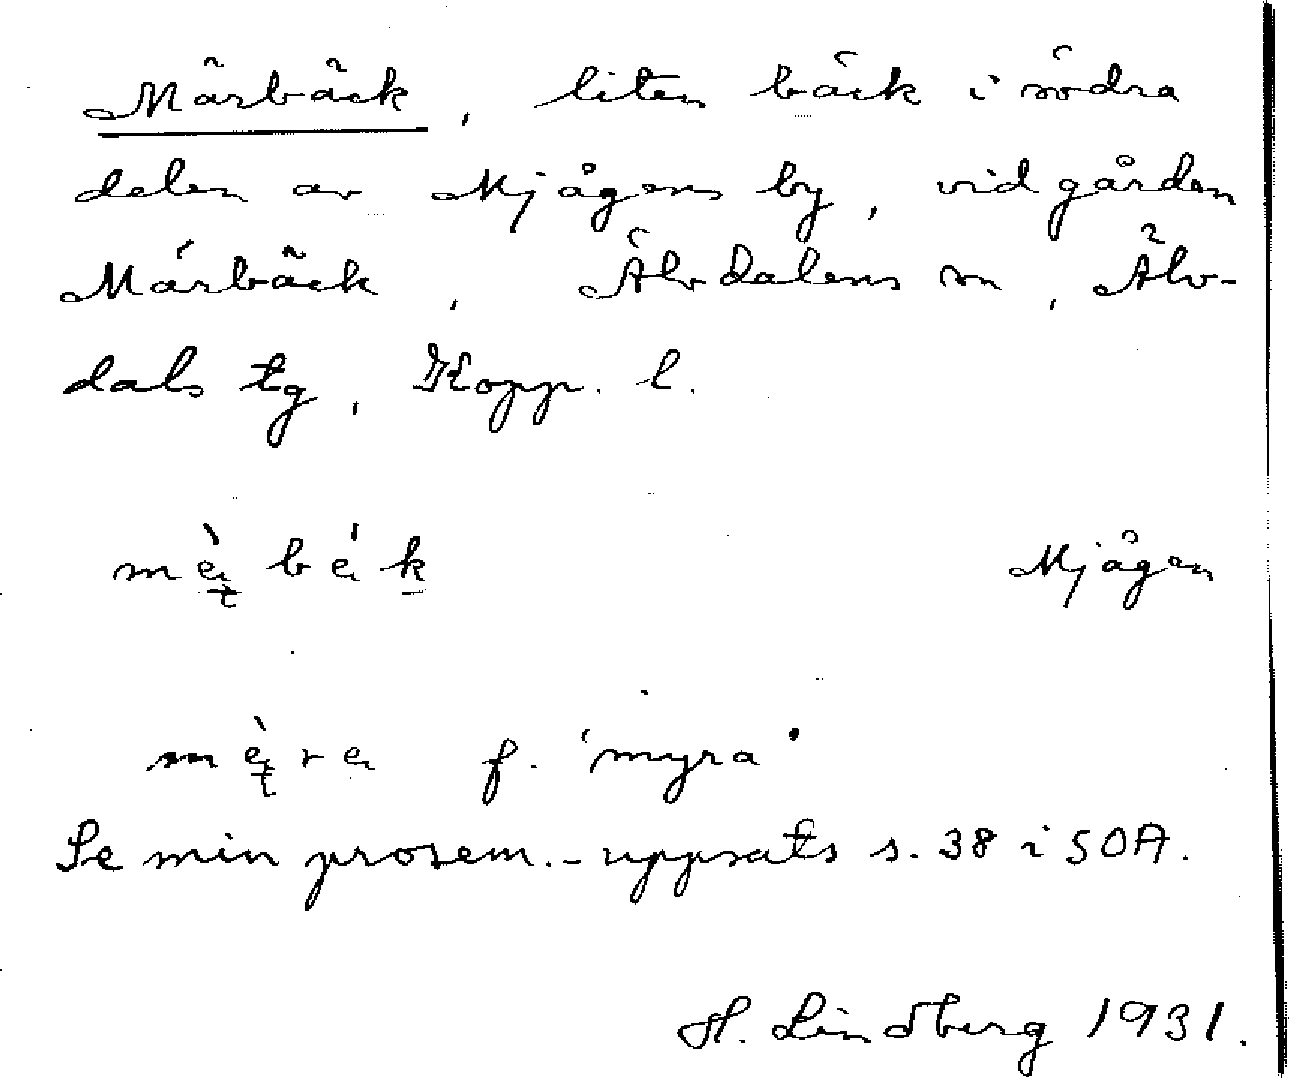 Märbäck, liten bäck i södra
delen av Mjågens by, vid gården
Märbäck, Älvdalens sn, Älv-
dals tg, Kopp. l.
Mjågen
f. 'myra'
Se min prosem.-uppsats s. 38 i SOA.
H. Lindberg 1931.